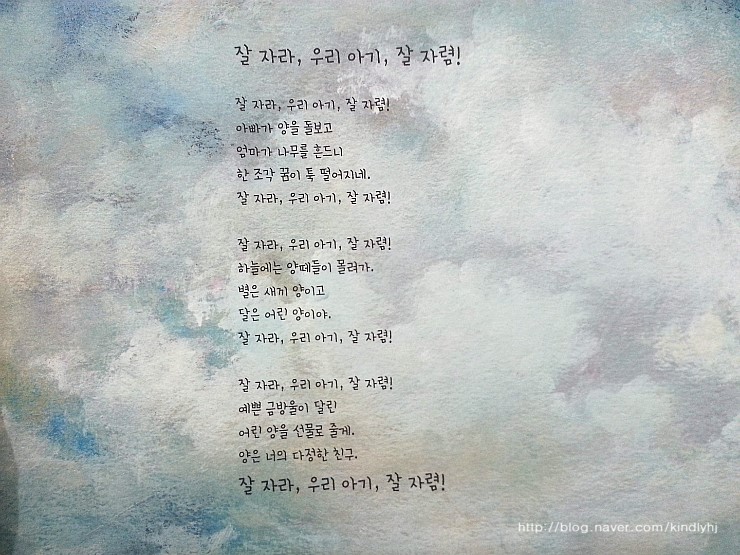 잘 자라, 우리 아기, 잘 자렴!
잘 자라, 우리 아기, 잘 자렴!
아빠가 양을 돌보고
엄마가 나무를 흔드니
한 조각 꿈이 툭 떨어지네.
잘 자라, 우리 아기, 잘 자렴!
잘 자라, 우리 아기, 잘 자렴!
하늘에는 양떼들이 몰려가.
별은 새끼 양이고
달은 어린 양이야.
잘 자라, 우리 아기, 잘 자렴!
잘 자라, 우리 아기, 잘 자렴!
예쁜 금방울이 달린
어린 양을 선물로 줄게.
양은 너의 다정한 친구.
잘 자라, 우리 아기, 잘 자렴!
http://blog.naver.com/kindlyhj